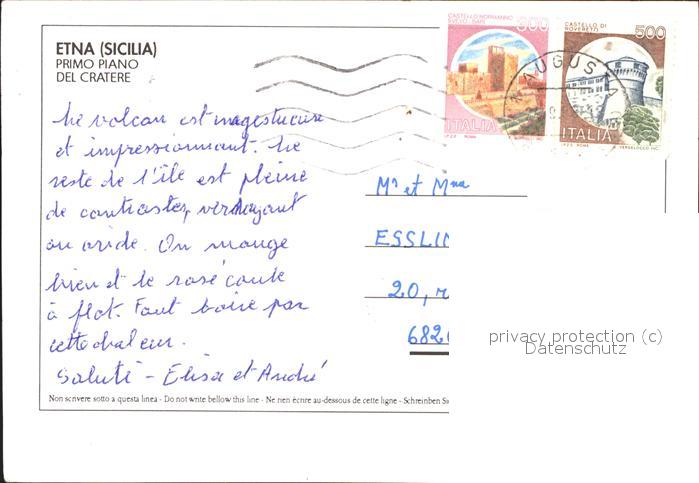 ETNA (SICILIA)
PRIMO PIANO
DEL CRATERE
CASTELLO NORMANNO
SVEVO - BARI
300
ITALIA
CASTELLO DI
ROVERETO
500
ITALIA
AUGUSTA
Le volcan est magestueuse
et impressionnant. Le
reste de l'île est pleine
de contrastes, verdoyant
ou aride. On mange
bien et le rosé coule
à flot. Faut boire par
cette chaleur.
Saluti - Elisa et André
Mr et Mme
ESSLIN
20, r
682
privacy protection (c)
Datenschutz
Non scrivere sotto a questa linea - Do not write bellow this line - Ne rien écrire au-dessous de cette ligne - Schreinben Sie